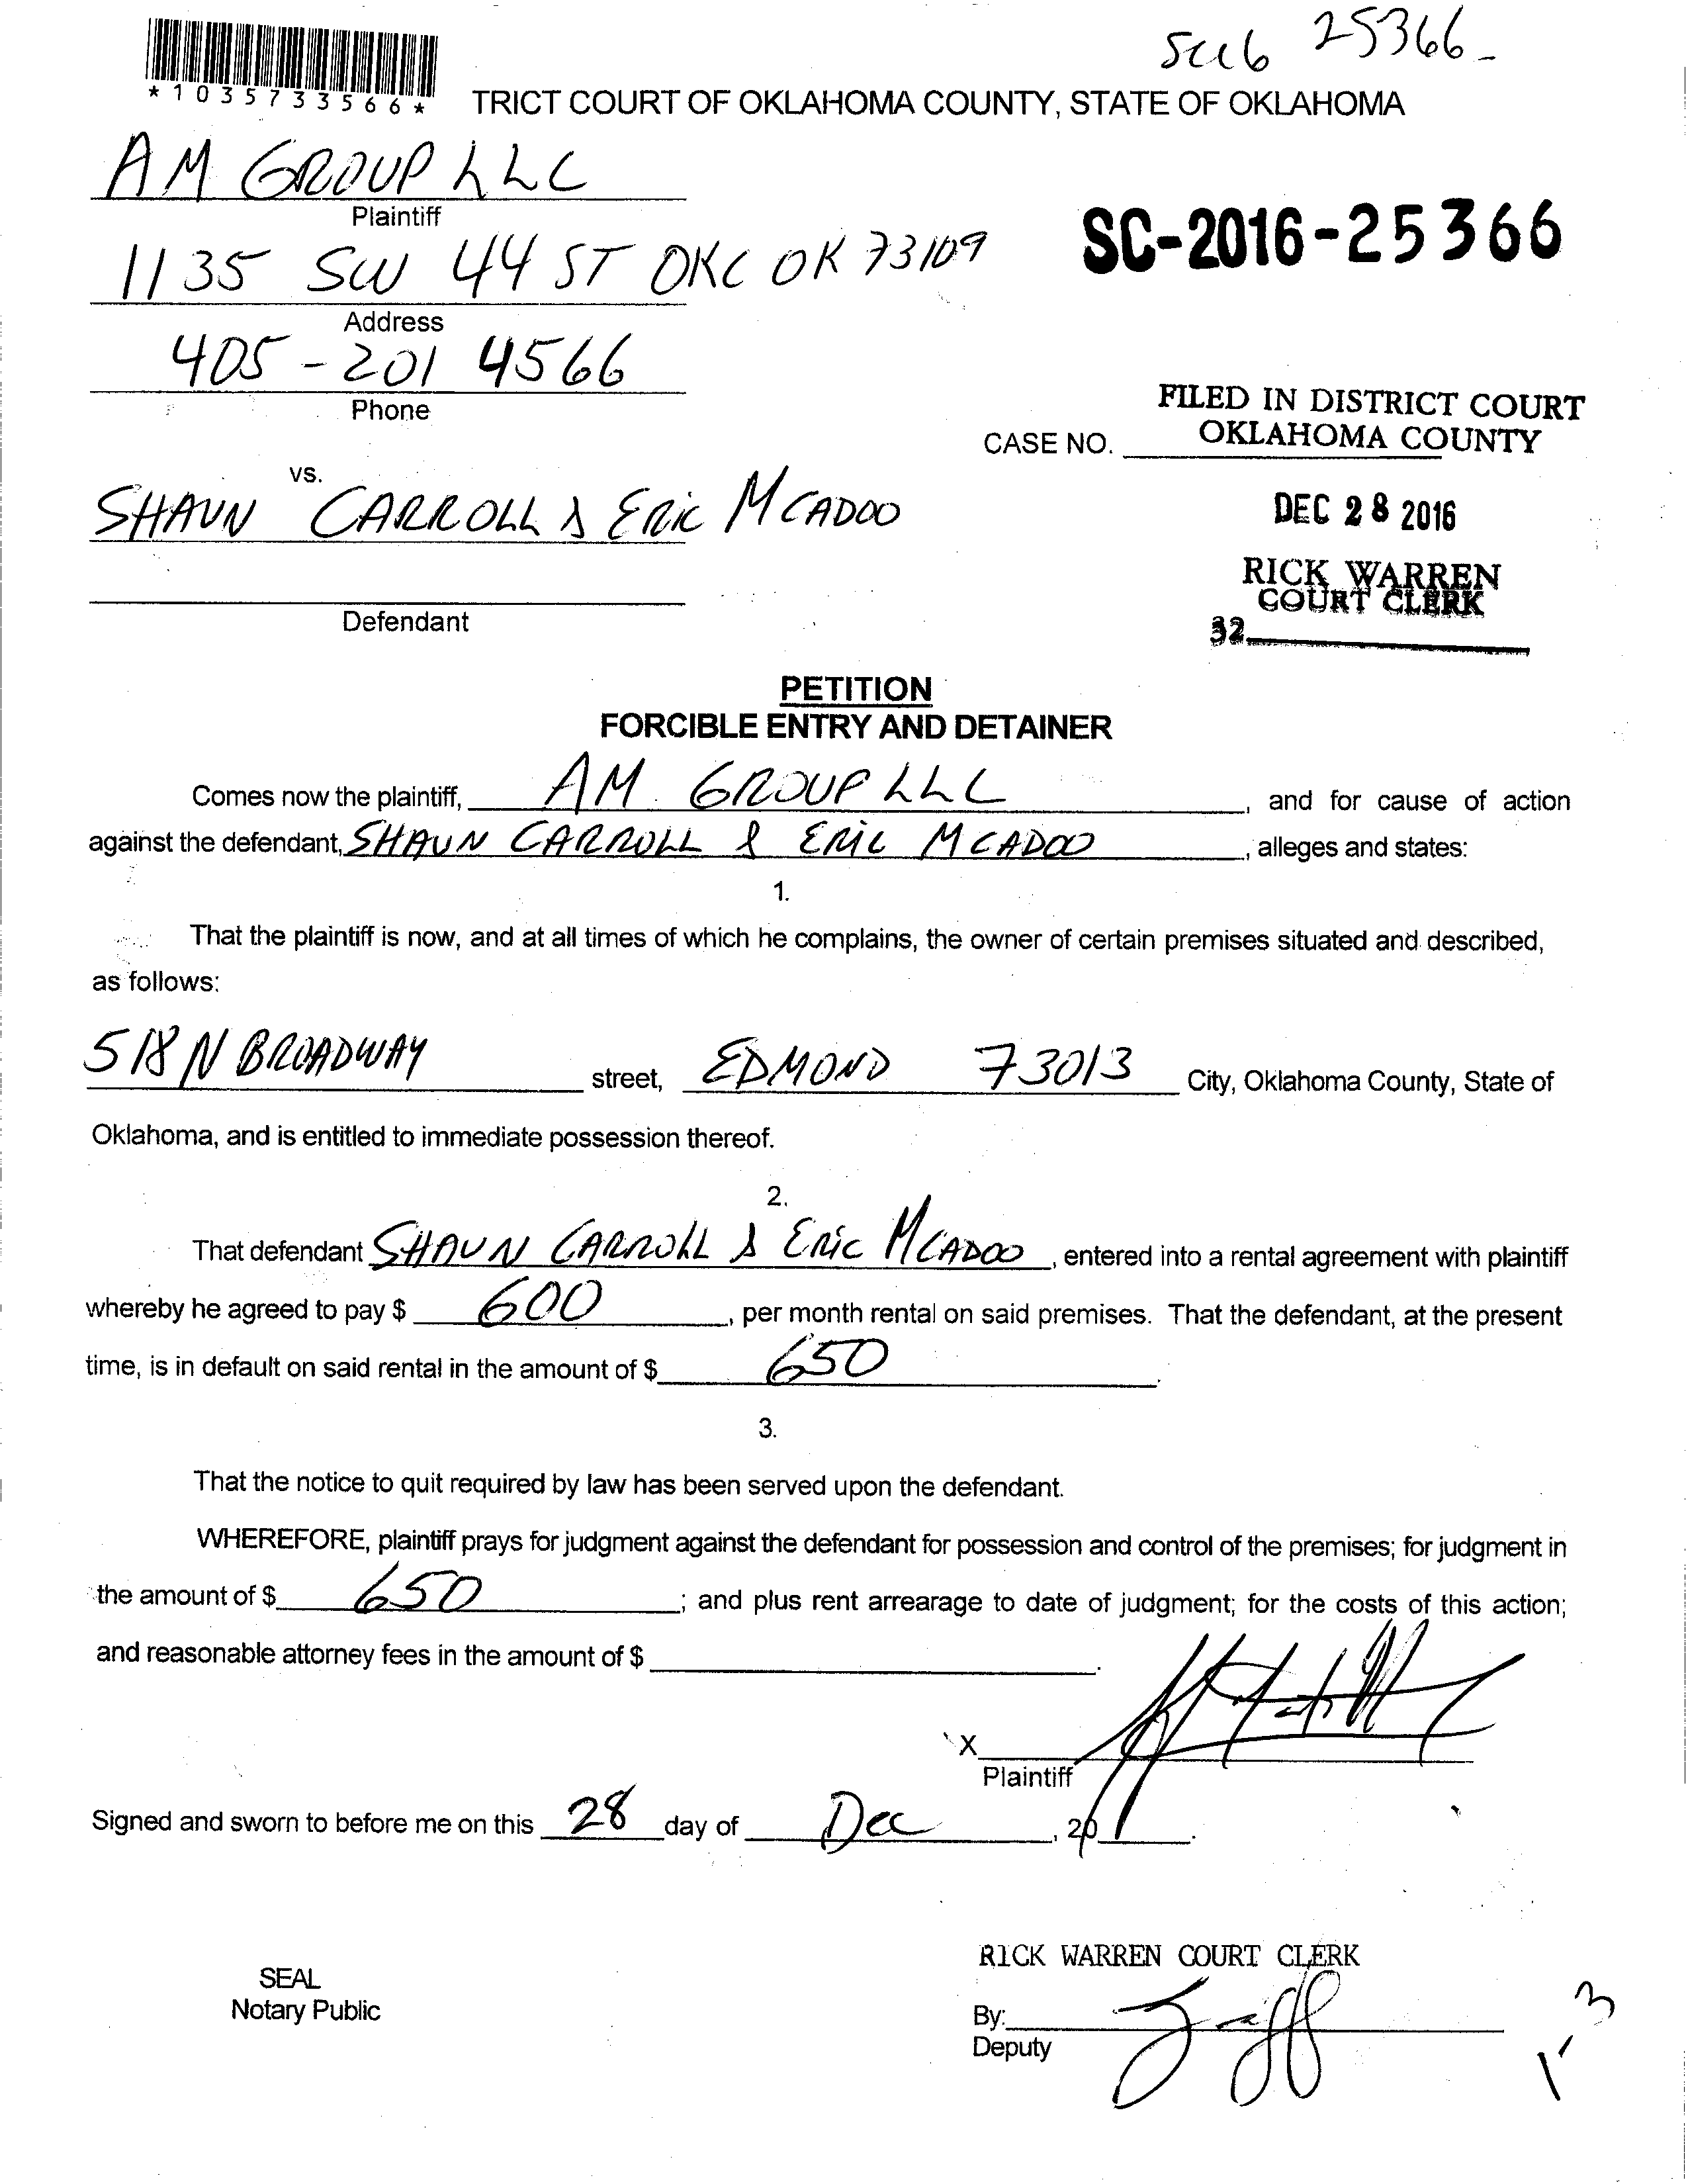 SC16 25366-
*1035733566*
TRICT COURT OF OKLAHOMA COUNTY, STATE OF OKLAHOMA
AM GROUP LLC
Plaintiff
SC-2016-25366
1135 SW 44 ST OKC OK 73109
Address
405-201 4566
Phone
FILED IN DISTRICT COURT
CASE NO. OKLAHOMA COUNTY
vs.
SHAUN CARROLL & ERIC MCADOO
DEC 28 2016
RICK WARREN
COURT CLERK
Defendant
32
PETITION
FORCIBLE ENTRY AND DETAINER
Comes now the plaintiff, AM GROUP LLC, and for cause of action
against the defendant, SHAUN CARROLL & ERIC MCADOO, alleges and states:
1.
That the plaintiff is now, and at all times of which he complains, the owner of certain premises situated and described,
as follows:
518 N BROADWAY street, EDMOND 73013 City, Oklahoma County, State of
Oklahoma, and is entitled to immediate possession thereof.
2.
That defendant SHAUN CARROLL & ERIC MCADOO, entered into a rental agreement with plaintiff
whereby he agreed to pay $ 600, per month rental on said premises. That the defendant, at the present
time, is in default on said rental in the amount of $ 650.
3.
That the notice to quit required by law has been served upon the defendant.
WHEREFORE, plaintiff prays for judgment against the defendant for possession and control of the premises; for judgment in
the amount of $ 650; and plus rent arrearage to date of judgment; for the costs of this action;
and reasonable attorney fees in the amount of $ .
X
Plaintiff
Signed and sworn to before me on this 28 day of Dec, 20 .
RICK WARREN COURT CLERK
SEAL
Notary Public
By:
Deputy
1-3